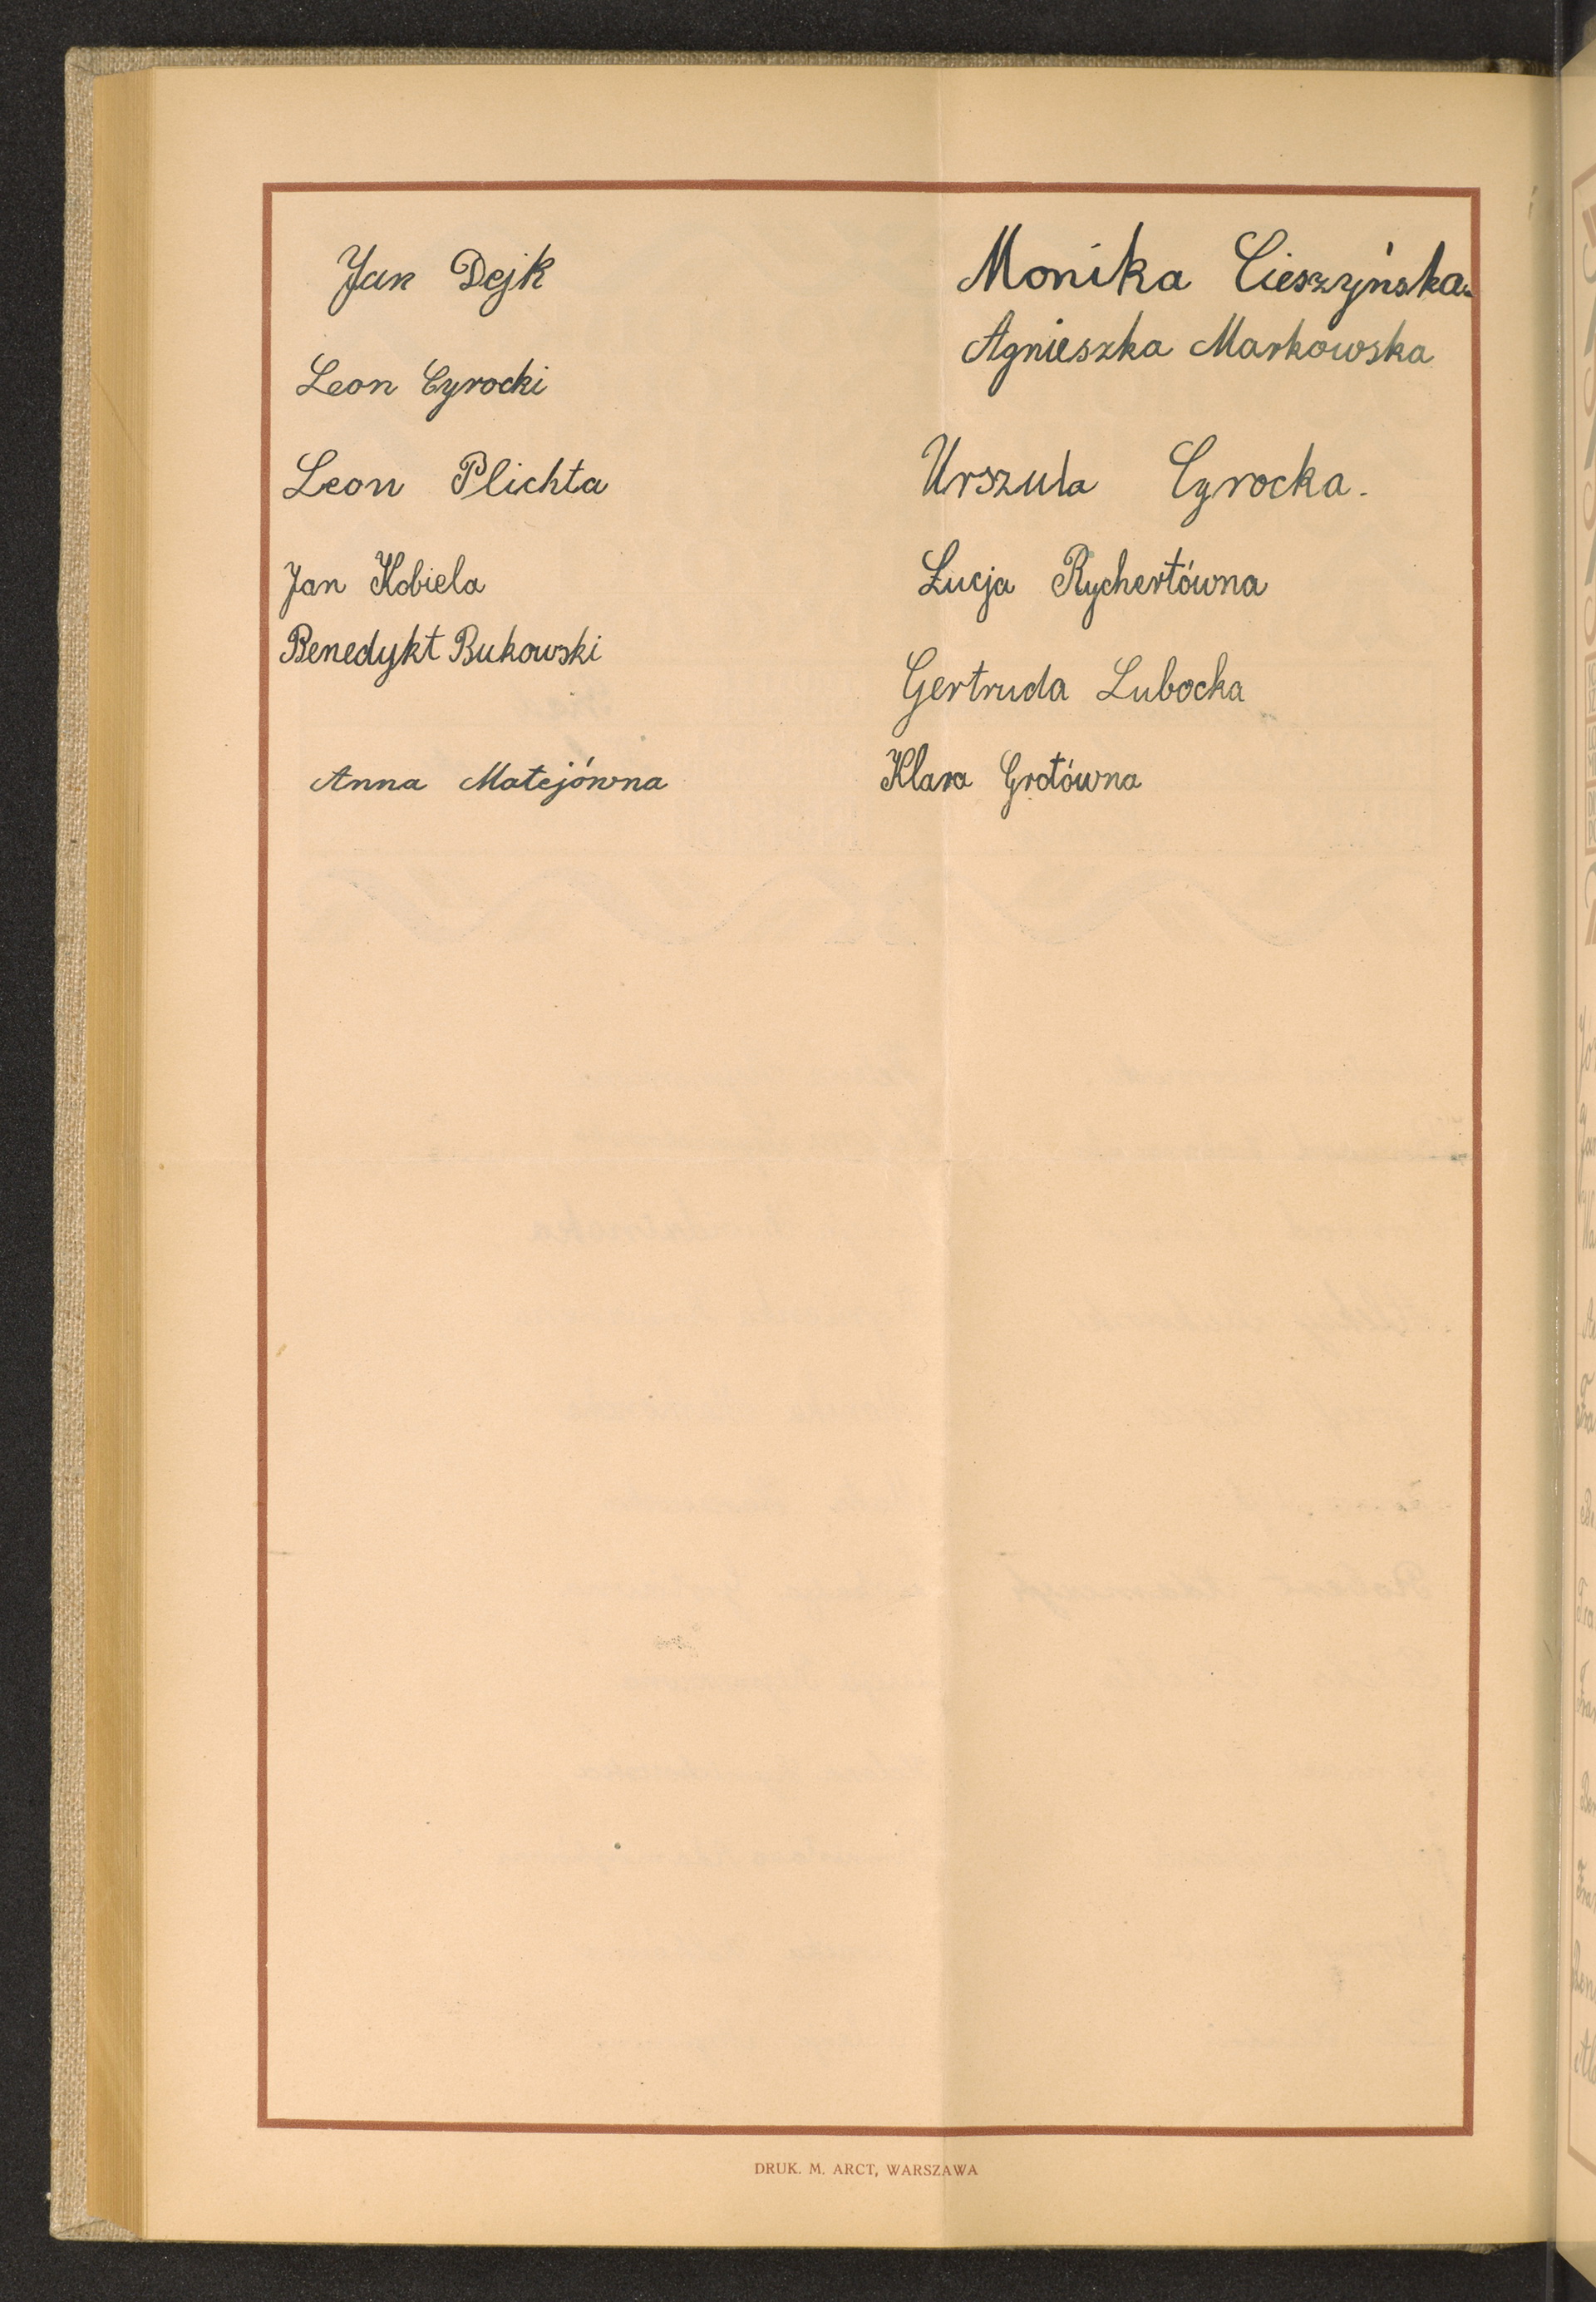 Jan Dejk
Leon Cyrocki
Leon Plichta
Jan Kobiela
Benedykt Bukowski
Anna Matejówna
Monika Cieszyńska.
Agnieszka Markowska
Urszula Cyrocka.
Łucja Rychertówna
Gertruda Lubocka
Klara Grotówna
DRUK. M. ARCT, WARSZAWA